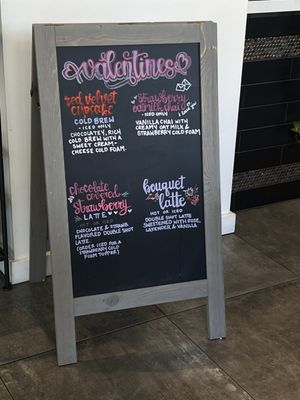 valentines
red velvet
cupcake
COLD BREW
- ICED ONLY -
CHOCOLATEY, RICH
COLD BREW WITH A
SWEET CREAM-
CHEESE COLD FOAM.
strawberry
oatmilk chai
- ICED ONLY -
VANILLA CHAI WITH
CREAMY OAT MILK &
STRAWBERRY COLD FOAM
chocolate covered
strawberry
LATTE
HOT OR ICED
CHOCOLATE &
FLAVORED DOUBLE SHOT
LATTE.
(ORDER ICED FOR A
STRAWBERRY COLD
FOAM TOPPER)
bouquet
latte
HOT OR ICED
DOUBLE SHOT LATTE
SWEETENED WITH ROSE,
LAVENDER, & VANILLA